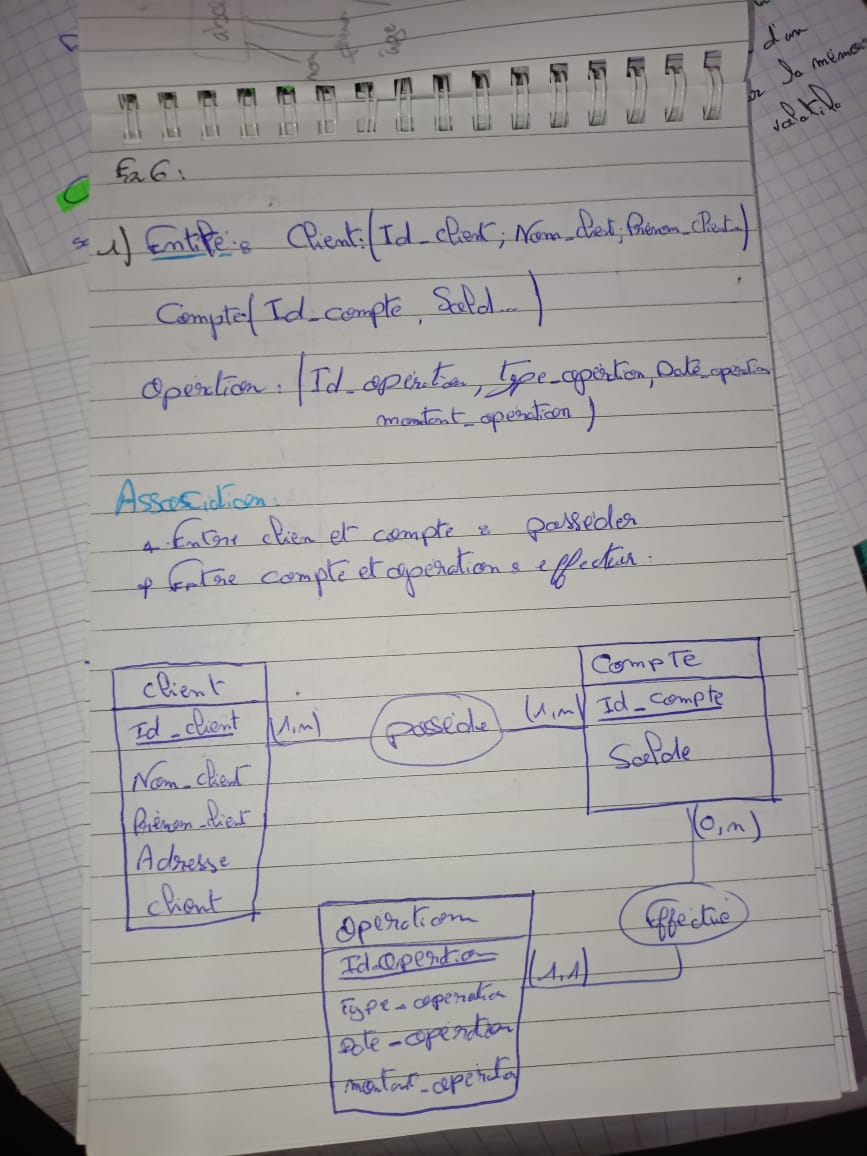 abse
age
d'un
la mémo
volatile
Ex 6 :
1) Entité : Client : (Id_client ; Nom_client ; Prénom_client...)
Compte ( Id_compte , Sold... )
Opération : ( Id_opération, type_opération, Date_opération
montant_opération )
Association :
Entre clien et compte : posséder
Entre compte et opération : effectuer.
Client
Id_client
Nom_client
Prénom_client
Adresse
client
(1,n)
possède
(1,n)
Compte
Id_compte
Solde
(0,n)
Effectué
(1,1)
Operation
Id_Opération
Type_operation
Date_opération
montant_opérato